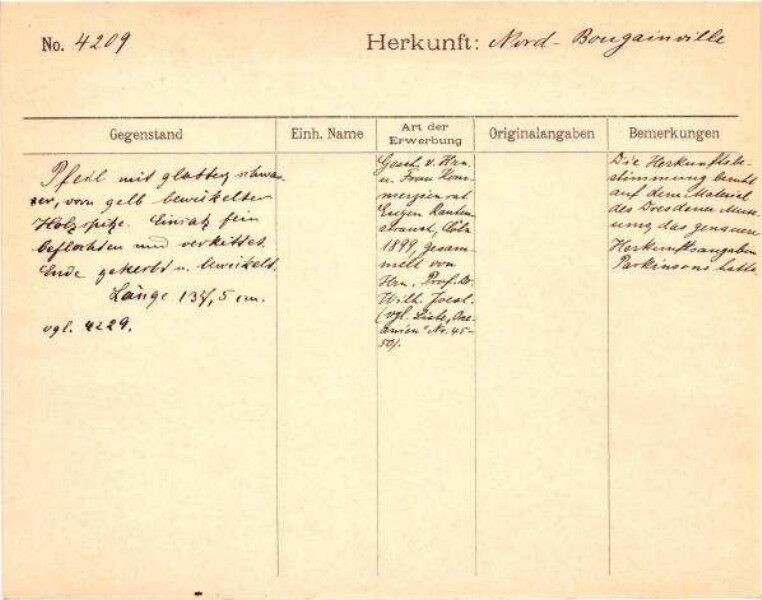 No. 4209
Herkunft: Nord-Bougainville
Gegenstand
Einh. Name
Art der Erwerbung
Originalangaben
Bemerkungen
Pfeil mit glatter, schwar-
zer, vorn gelb bewickelter
Holzspitze. Einsatz fein
beflochten und verkittet.
Ende gekerbt u. bewickelt.
Länge 137,5 cm.
vgl. 4229.
Gesch. v. Hrn.
u. Frau Kom-
merzienrat
Eugen Rauten-
strauch, Cöln
1899, gesam-
melt von
Hrn. Prof. Dr.
Wilh. Joest.
(vgl. Liste "Oze-
anien" Nr. 45-
50).
Die Herkunftsbe-
stimmung beruht
auf dem Material
des Dresdener Muse-
ums, das genauere
Herkunftsangaben
Parkinsons hatte